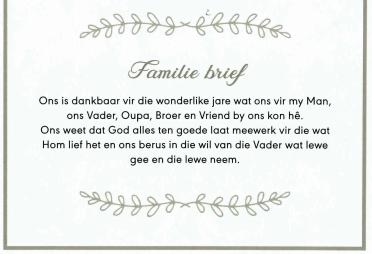 Familie brief
Ons is dankbaar vir die wonderlike jare wat ons vir my Man,
ons Vader, Oupa, Broer en Vriend by ons kon hê.
Ons weet dat God alles ten goede laat meewerk vir die wat
Hom lief het en ons berus in die wil van die Vader wat lewe
gee en die lewe neem.